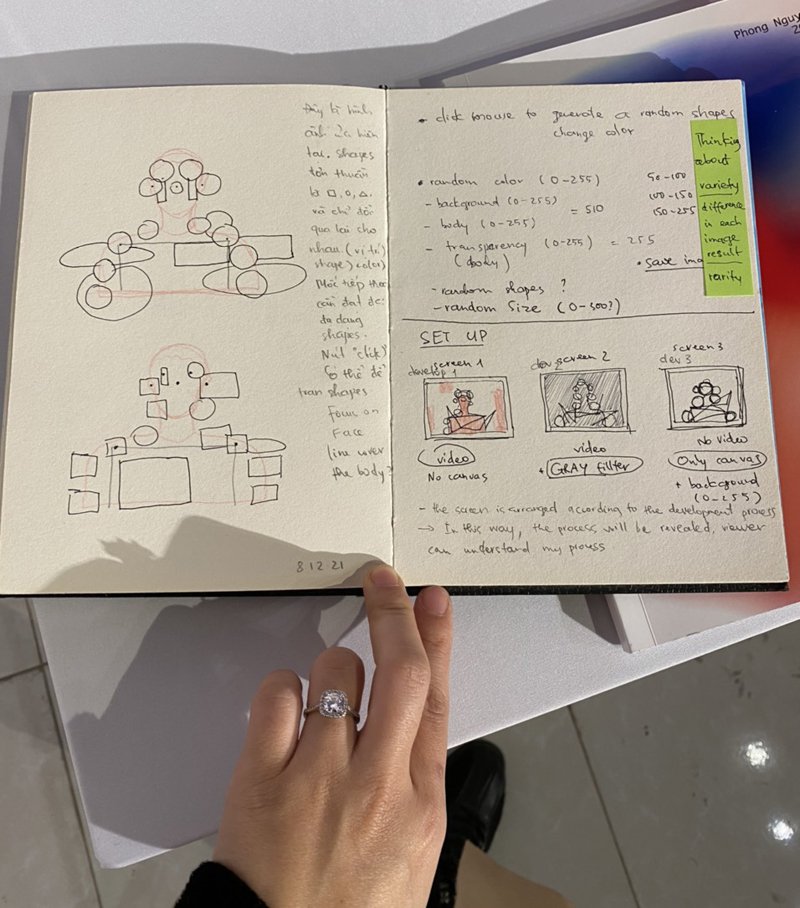 Phong Nguy
Đây là hình
ảnh của hiện
tại. shapes
đơn thuần
là □, o, △.
và chỉ đổi
qua lại cho
nhau. (vị trí
shape) color)
Mục tiếp theo
cần đạt đc:
đa dạng
shapes.
Nút "click"
Có thể để
tran shapes
Focus on
Face
line over
the body?
8 12 21
• click mouse to generate a random shapes
change color
• random color (0-255)
- background (0-255)
= 510
- body (0-255)
- transparency (0-255) = 255
(body)
- random shapes ?
- random size (0-300?)
50-100
100-150
150-255
• save ima
Thinking
about
variety
difference
in each
image
result
rarity
SET UP
screen 1
develop 1
video
No canvas
dev screen 2
video
+ GRAY filter
screen 3
dev 3
No video
Only canvas
+ background
(0-255)
- the screen is arranged according to the development process
→ In this way, the process will be revealed, viewer
can understand my process